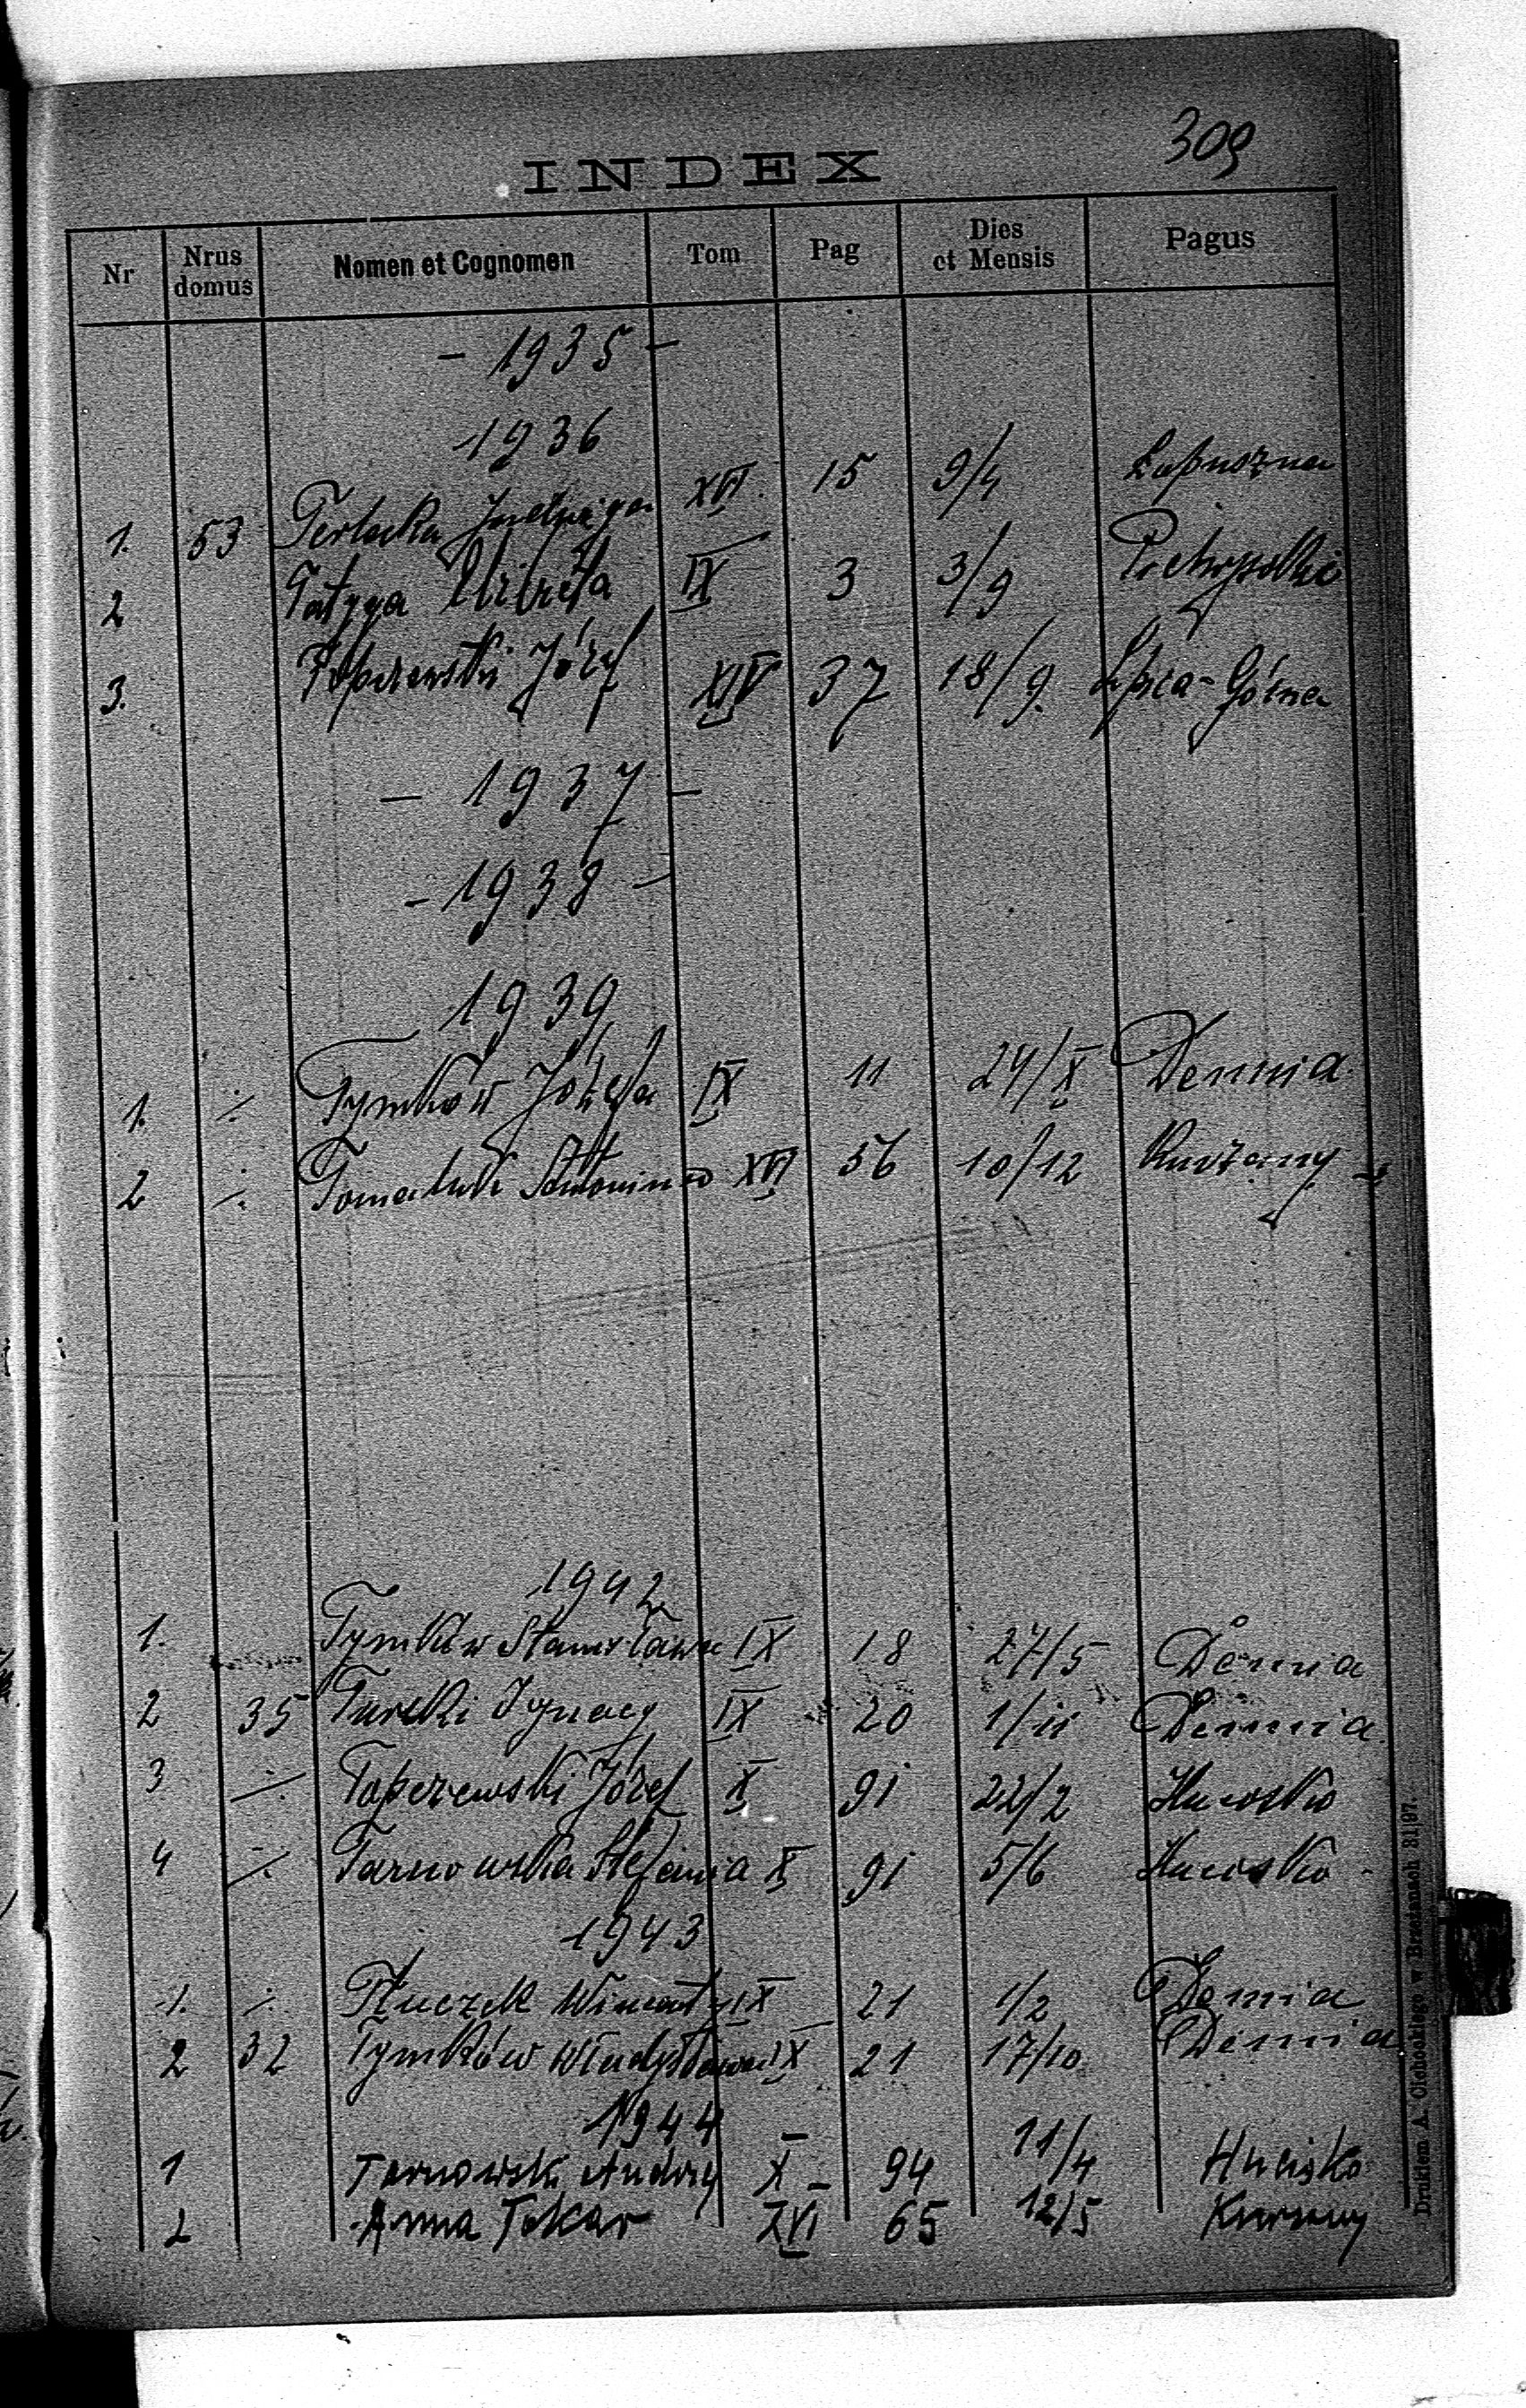 309
INDEX
Nr Nrus domus Nomen et Cognomen Tom Pag Dies et Mensis Pagus
- 1935 -
1936
1. 53 Terlecka Jadwiga XVI. 15 9/4 Łapuszna
2 Tatyga IX 3 3/9
3. Topczewski Józef XIV 37 18/9. Lipica-Górna
- 1937 -
- 1938 -
1939
1. ./. Tymków Józefa IX 11 24/X Demnia
2 ./. XVI 56 10/12 Kurzany
1942
1. Tymków Stanisława IX 18 27/5 Demnia
2 35 Turecki Ignacy IX 20 1/11 Demnia
3 ./. Topczewski Józef X 91 22/2 Hucisko
4 ./. Tarnowska Stefania X 91 5/6 Hucisko
1943
1. ./. Tłuczek Wincenty IX 21 1/2 Demnia
2 32 Tymków Władysława IX 21 17/10 Demnia
1944 -
1 Tarnowski Andrzej X - 94 11/4 Hucisko
2 Anna Tokar XVI 65 12/5 Kurzany
Drukiem A. Cichockiego w Brzeżanach 31|97.